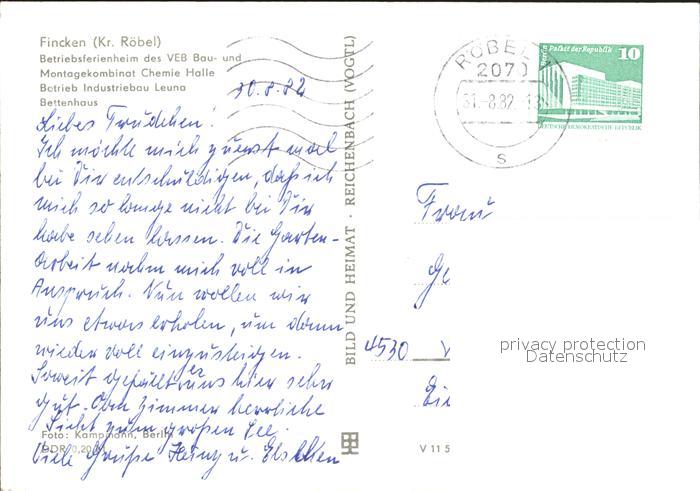 Fincken (Kr. Röbel)
Betriebsferienheim des VEB Bau- und
Montagekombinat Chemie Halle
Betrieb Industriebau Leuna
Bettenhaus
30.8.82
Liebes Trudchen!
Ich möchte mich zuerst mal
bei Dir entschuldigen, daß ich
mich so lange nicht bei Dir
habe sehen lassen. Die Garten-
arbeit nahm mich voll in
Anspruch. Nun wollen wir
uns etwas erholen, um dann
wieder voll einzusteigen.
Soweit gefällt es uns hier sehr
gut. Vom Zimmer herrliche
Sicht zum großen See.
Viele Grüße Heinz u. Elschen
Foto: Kampmann, Berlin
DDR 0,20
BILD UND HEIMAT · REICHENBACH (VOGTL)
V 11 5
RÖBEL
2070
31.-8.82
s
Berlin Palast der Republik
10
DEUTSCHE DEMOKRATISCHE REPUBLIK
Frau
Ge
4530
Die
privacy protection
Datenschutz